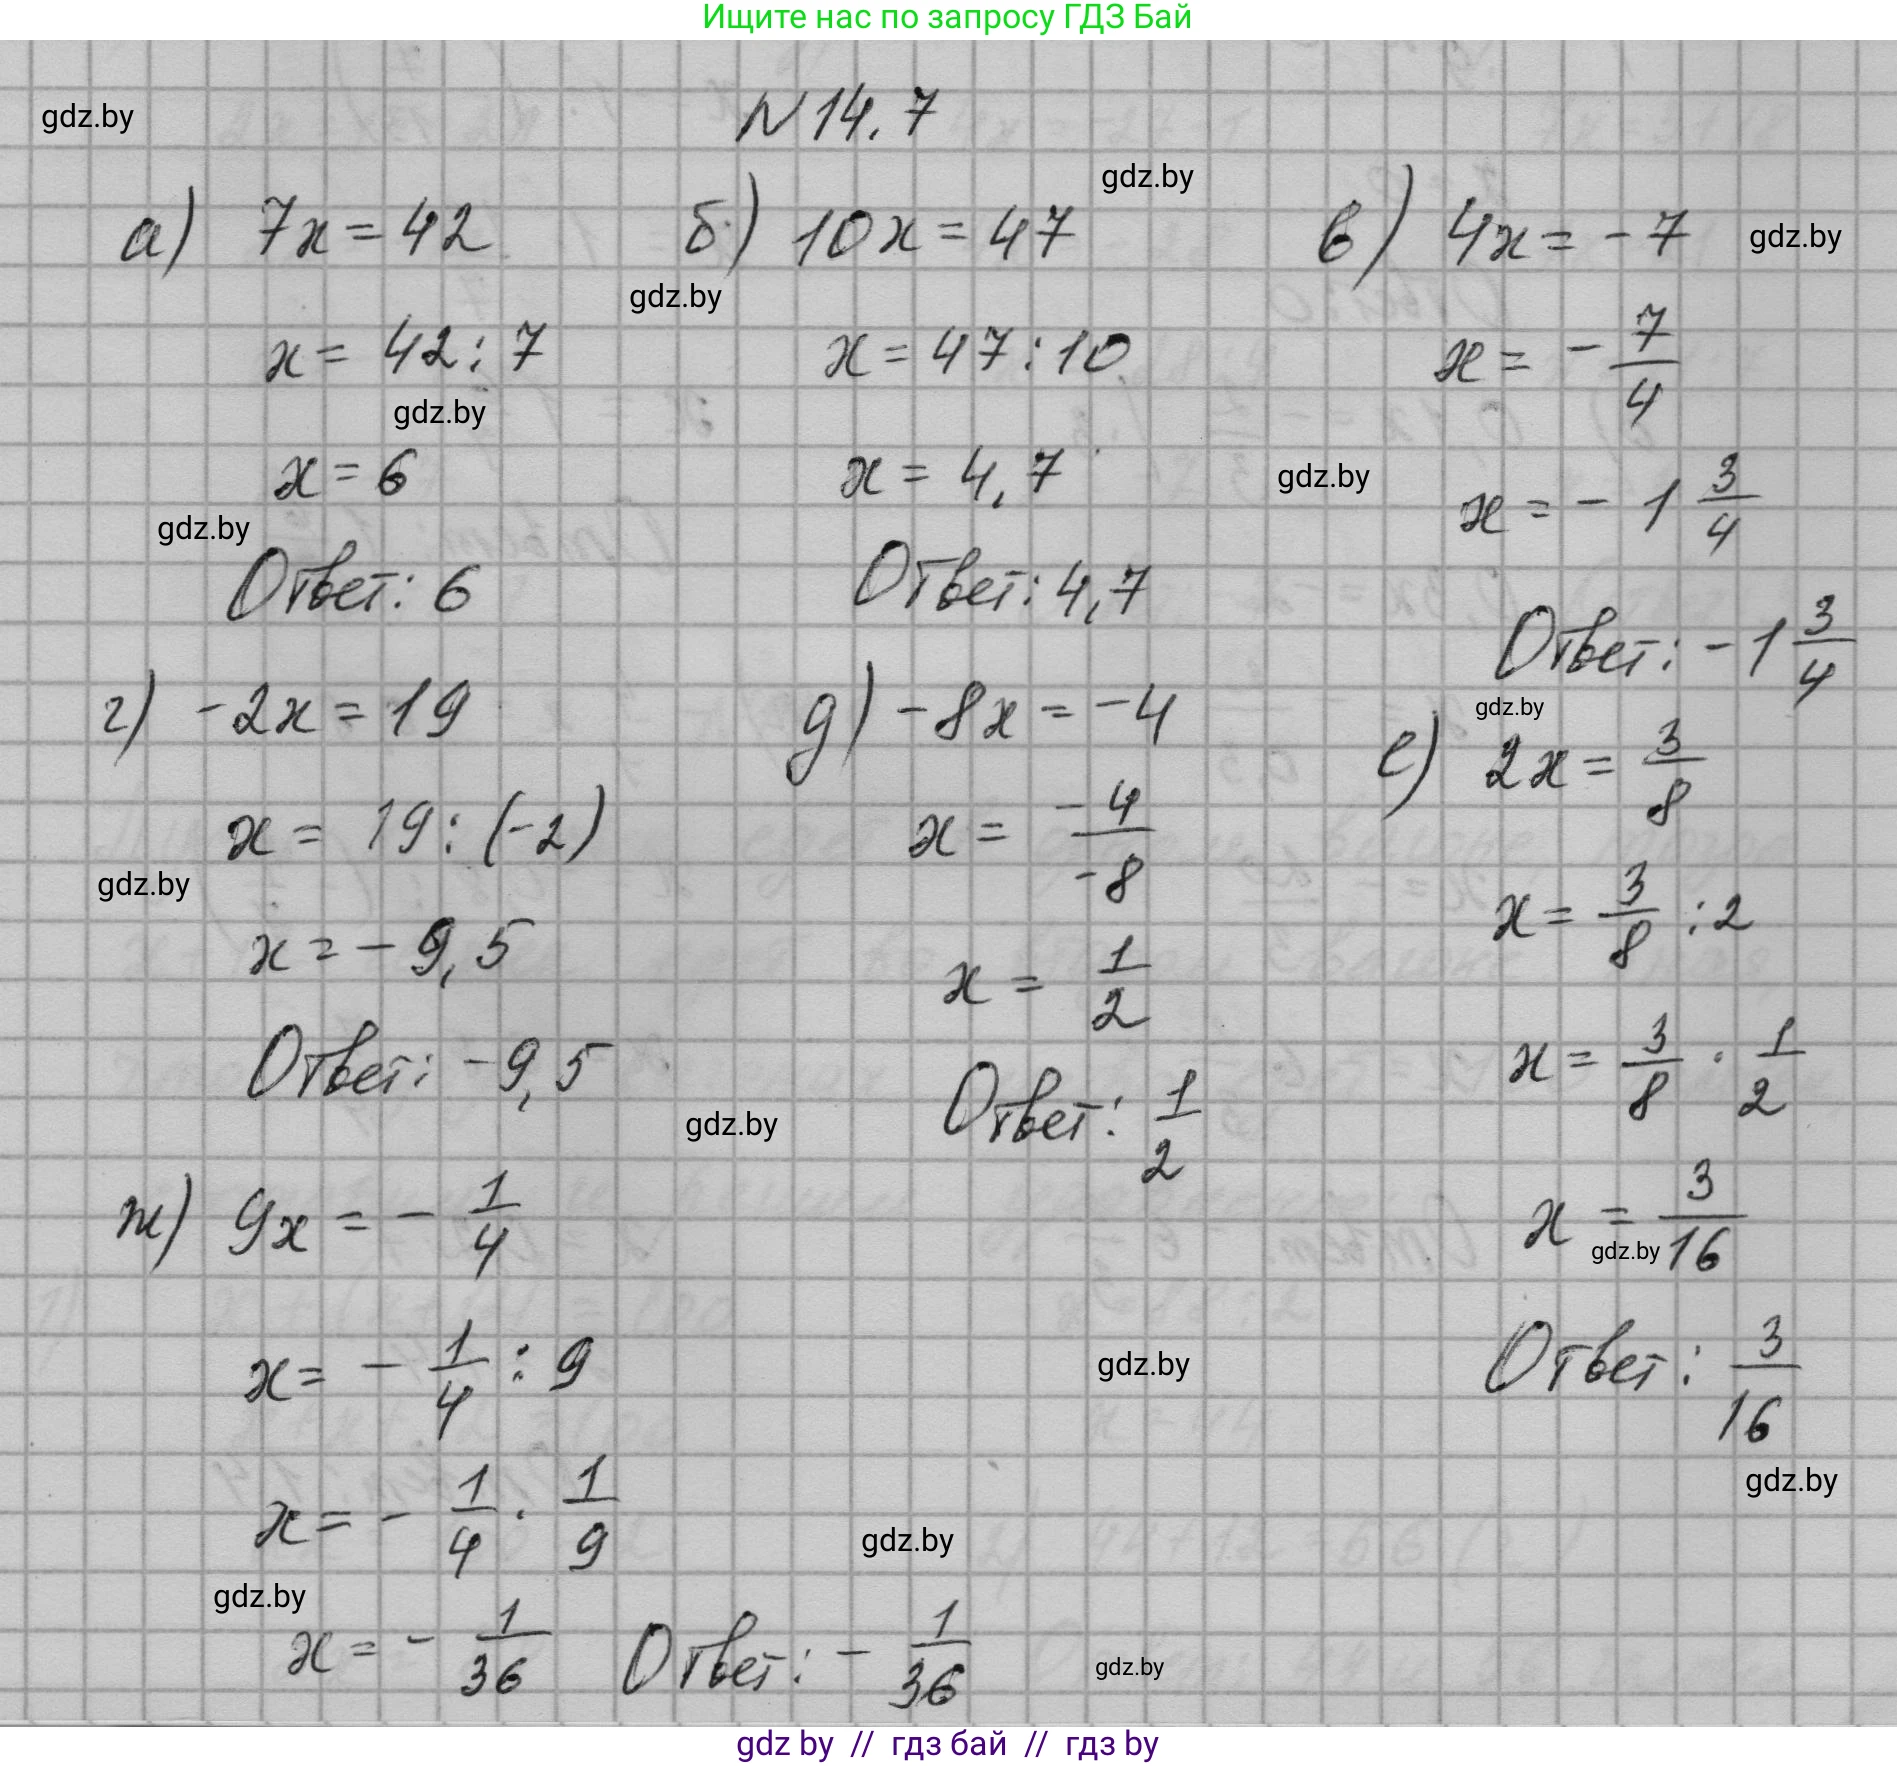 Ищите нас по запросу ГДЗ Бай
N 14.7
gdz.by
gdz.by
а) 7x = 42
x = 42 : 7
gdz.by
x = 6
gdz.by
Ответ: 6
б) 10x = 47
gdz.by
x = 47 : 10
x = 4,7
Ответ: 4,7
в) 4x = -7
gdz.by
x = - 7/4
gdz.by
x = - 1 3/4
Ответ: - 1 3/4
г) -2x = 19
x = 19 : (-2)
gdz.by
x = - 9,5
Ответ: -9,5
gdz.by
д) -8x = -4
x = -4/-8
x = 1/2
Ответ: 1/2
gdz.by
е) 2x = 3/8
x = 3/8 : 2
x = 3/8 · 1/2
x = 3/16
gdz.by
Ответ: 3/16
gdz.by
ж) 9x = - 1/4
x = - 1/4 : 9
gdz.by
x = - 1/4 · 1/9
gdz.by
gdz.by
x = - 1/36 Ответ: - 1/36
gdz.by
gdz by // гдз бай // гдз by